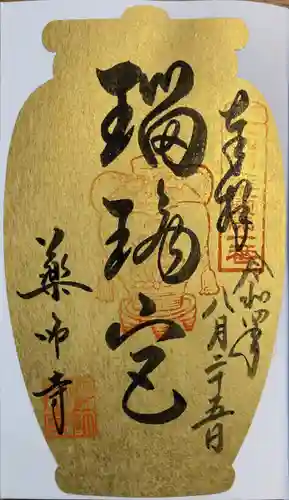 奉拝
令和四年
八月二十五日
瑠璃宮
薬師寺